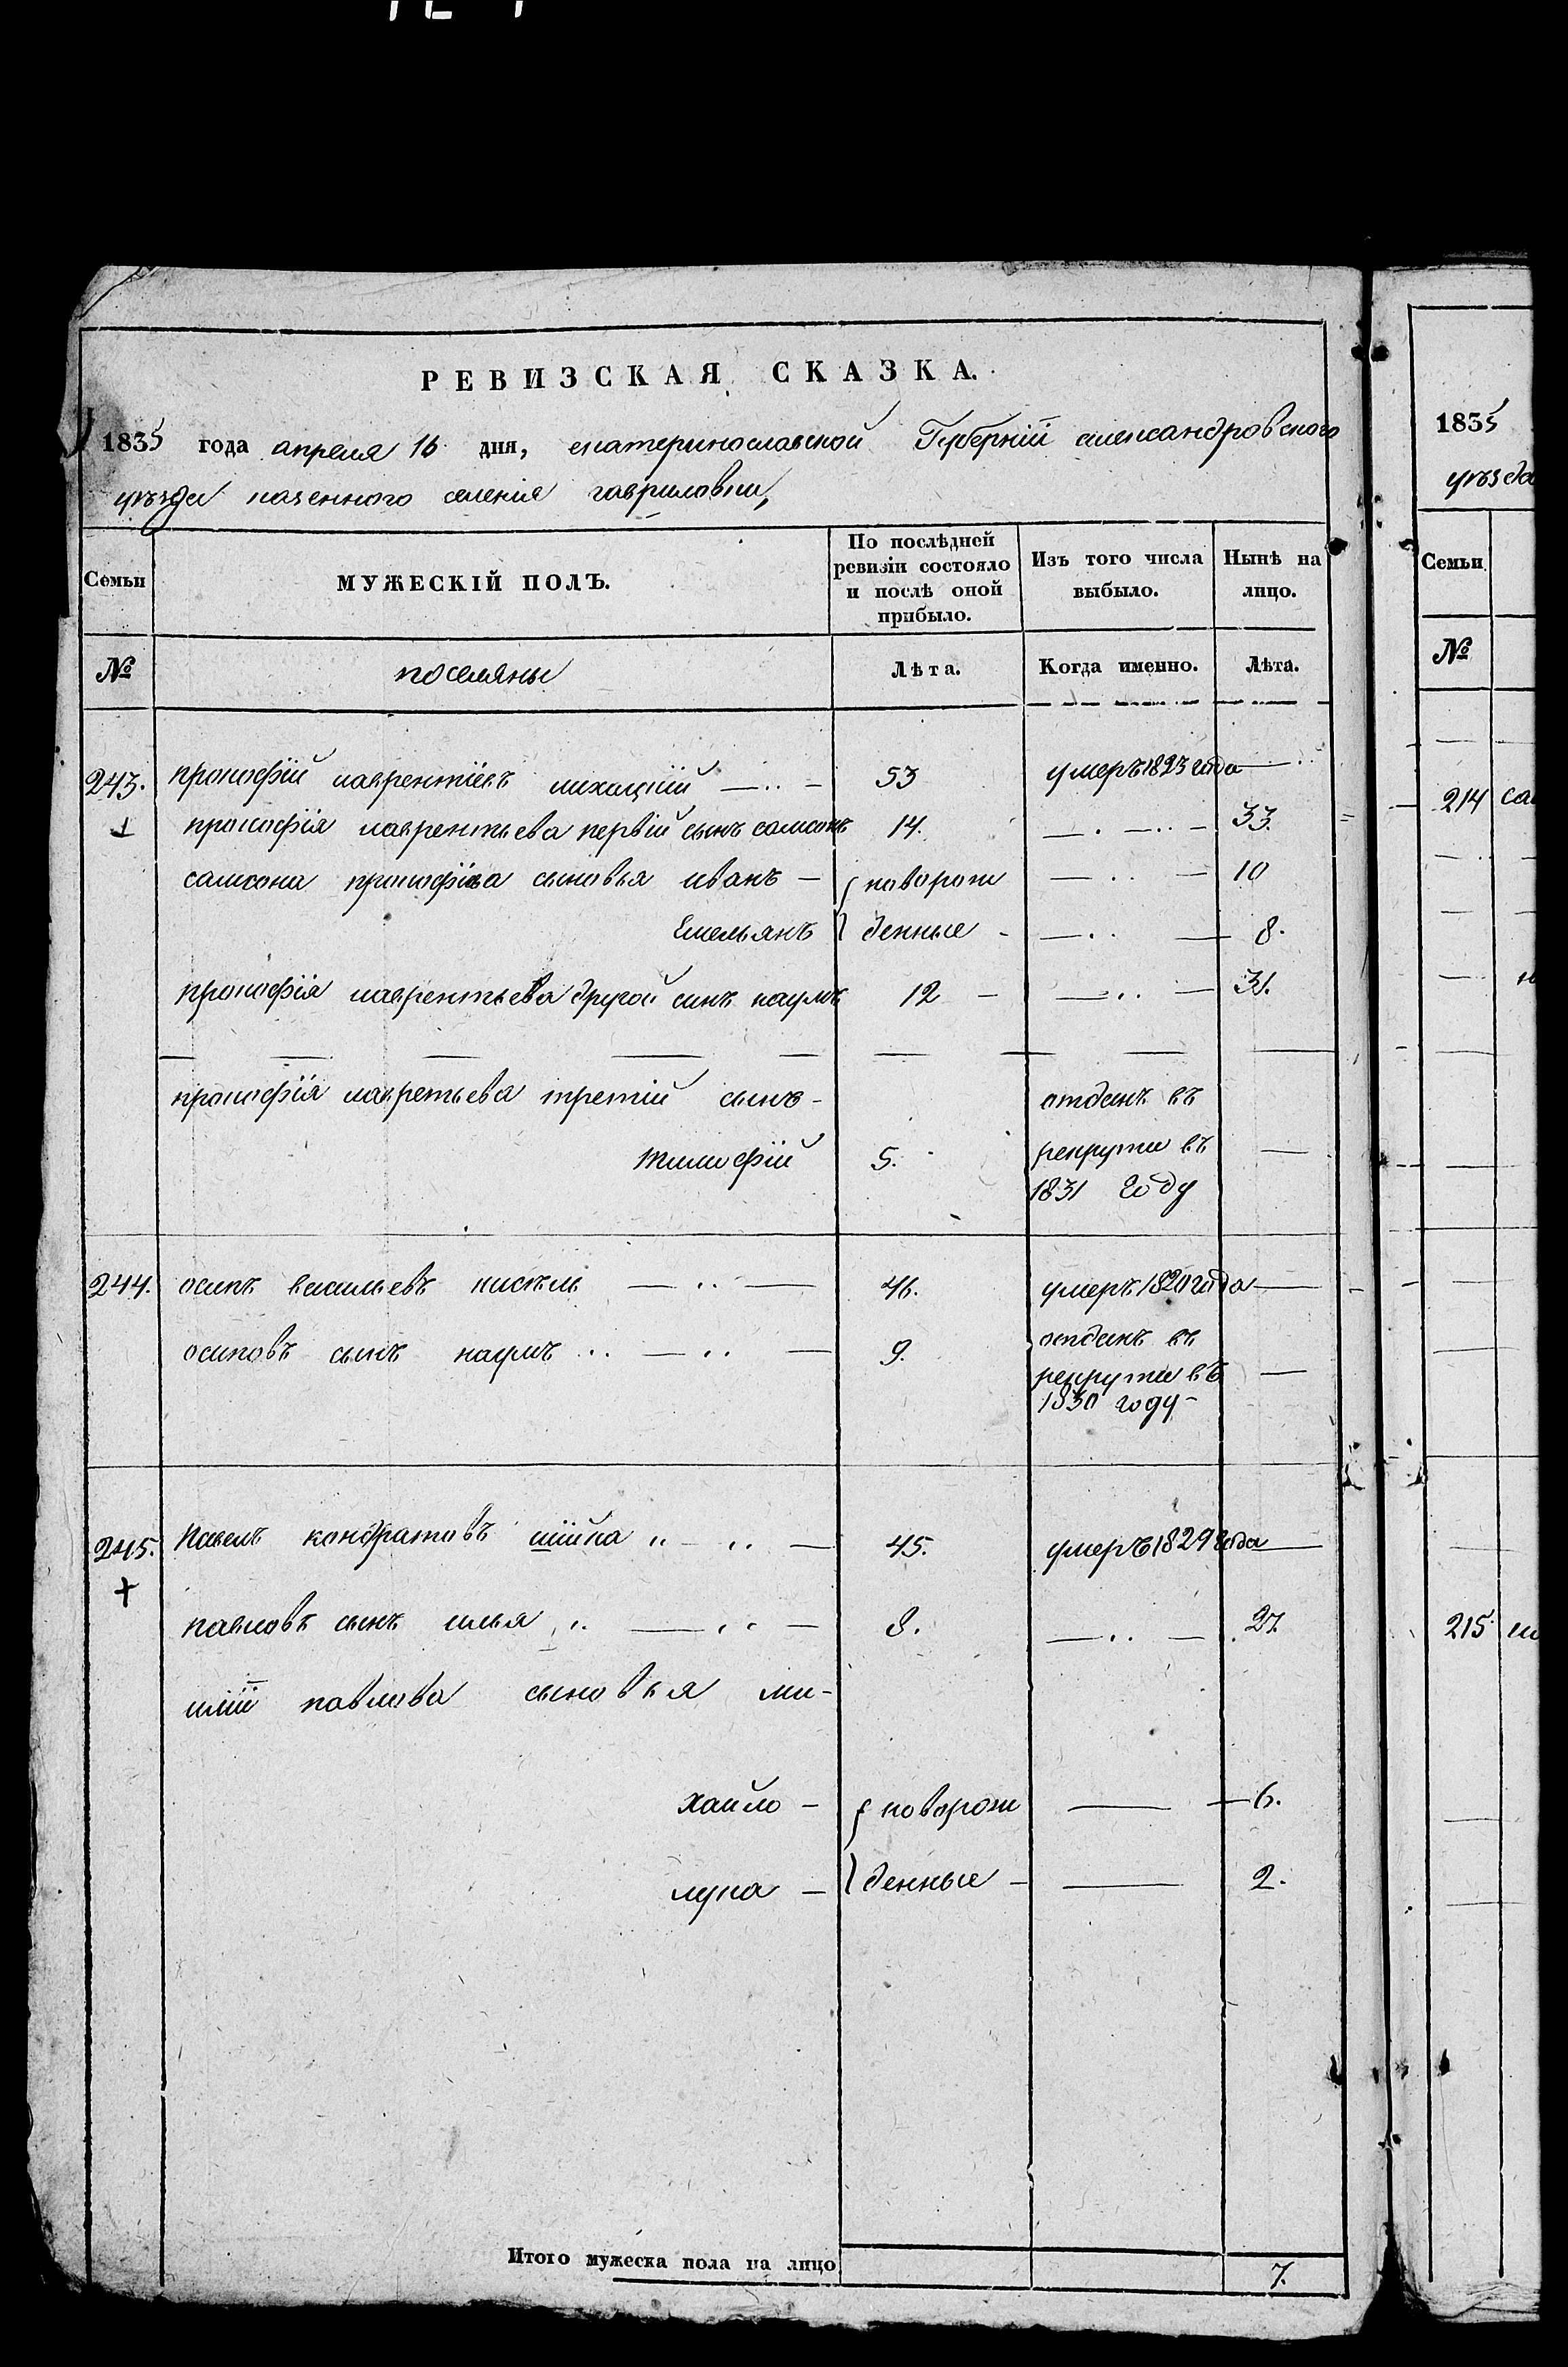 РЕВИЗСКАЯ СКАЗКА.
1835 года апреля 16 дня, екатеринославской Губерніи александровского
уѣзда казенного селенія гавриловки,
Семьи
МУЖЕСКІЙ ПОЛЪ.
По послѣдней ревизіи состояло и послѣ оной прибыло.
Изъ того числа выбыло.
Нынѣ на лицо.
№ поселяны Лѣта. Когда именно. Лѣта.
243. прокофій лаврентіевъ 53 умеръ 1823 года
прокофія лаврентьева первій сынъ самсонъ 14. 33.
самсона прокофіева сыновья иванъ — новорож 10
Емельянъ денные - 8.
прокофія лаврентьева другой синъ наумъ 12 — 31.
прокофія лавретьева третій сынъ - отданъ въ
тимофій 5. рекруты въ
1831 году
244. осипъ васильевъ кисѣль 46. умеръ 1820 года
осиповъ сынъ наумъ 9. отданъ въ
рекруты въ
1830 году -
245. Павелъ кондратовъ шійка 45. умеръ 1829 года
+
павловъ сынъ илья 8. 27.
иліи павлова сыновья ми-
хайло — новорож — 6.
лука — денные — 2.
Итого мужеска пола на лицо 7.
1835
уѣзда
Семьи
№
214
215